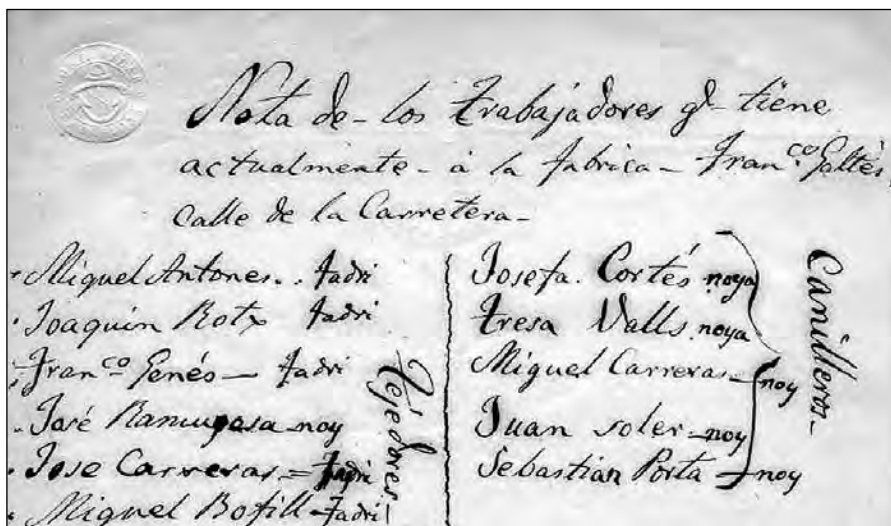 Nota de los trabajadores qe tiene
actualmente à la fabrica Franco Galtés
calle de la Carretera
Miguel Antones fadri
Joaquin Rotx fadri
Franco Genés fadri
José noy
Jose Carreras fadri
Miguel Bofill fadri
Tejedores
Josefa Cortés noya
Tresa Valls noya
Miguel Carreras noy
Juan soler noy
Sebastian Porta noy
Canilleros